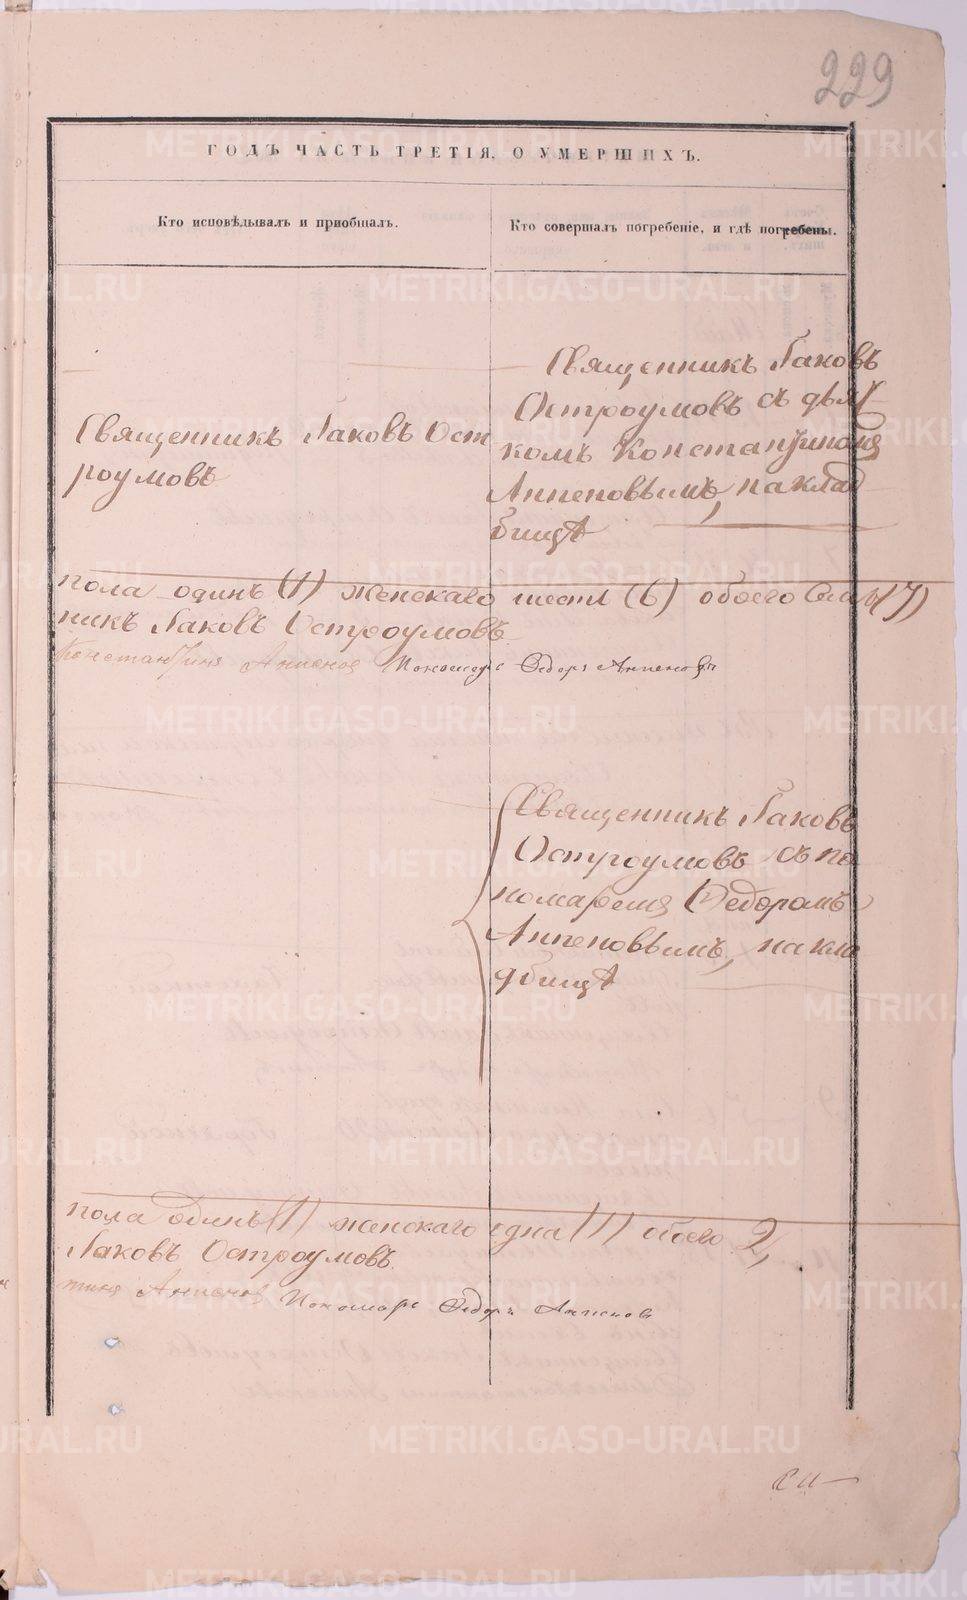 229
ГОДЪ ЧАСТЬ ТРЕТІЯ, О УМЕРШИХЪ.
Кто исповѣдывалъ и пріобщалъ.
Кто совершалъ погребеніе, и гдѣ погребены.
Священникъ Іаковъ Ост
роумовъ
Священникъ Іаковъ
Остроумовъ съ дьяч
комъ Константиномъ
Аппеновымъ, на клад
бищѣ
пола одинъ (1) женскаго шесть (6) обоего семь (7)
никъ Іаковъ Остроумовъ
Константинъ Пономарь Ѳедоръ
Священникъ Іаковъ
Остроумовъ съ по
номаремъ Ѳедоромъ
Аппеновымъ, на кла
дбищѣ
пола одинъ (1) женскаго одна (1) обоего 2,
Іаковъ Остроумовъ.
тинъ Пономарь Ѳедоръ
METRIKI.GASO-URAL.RU